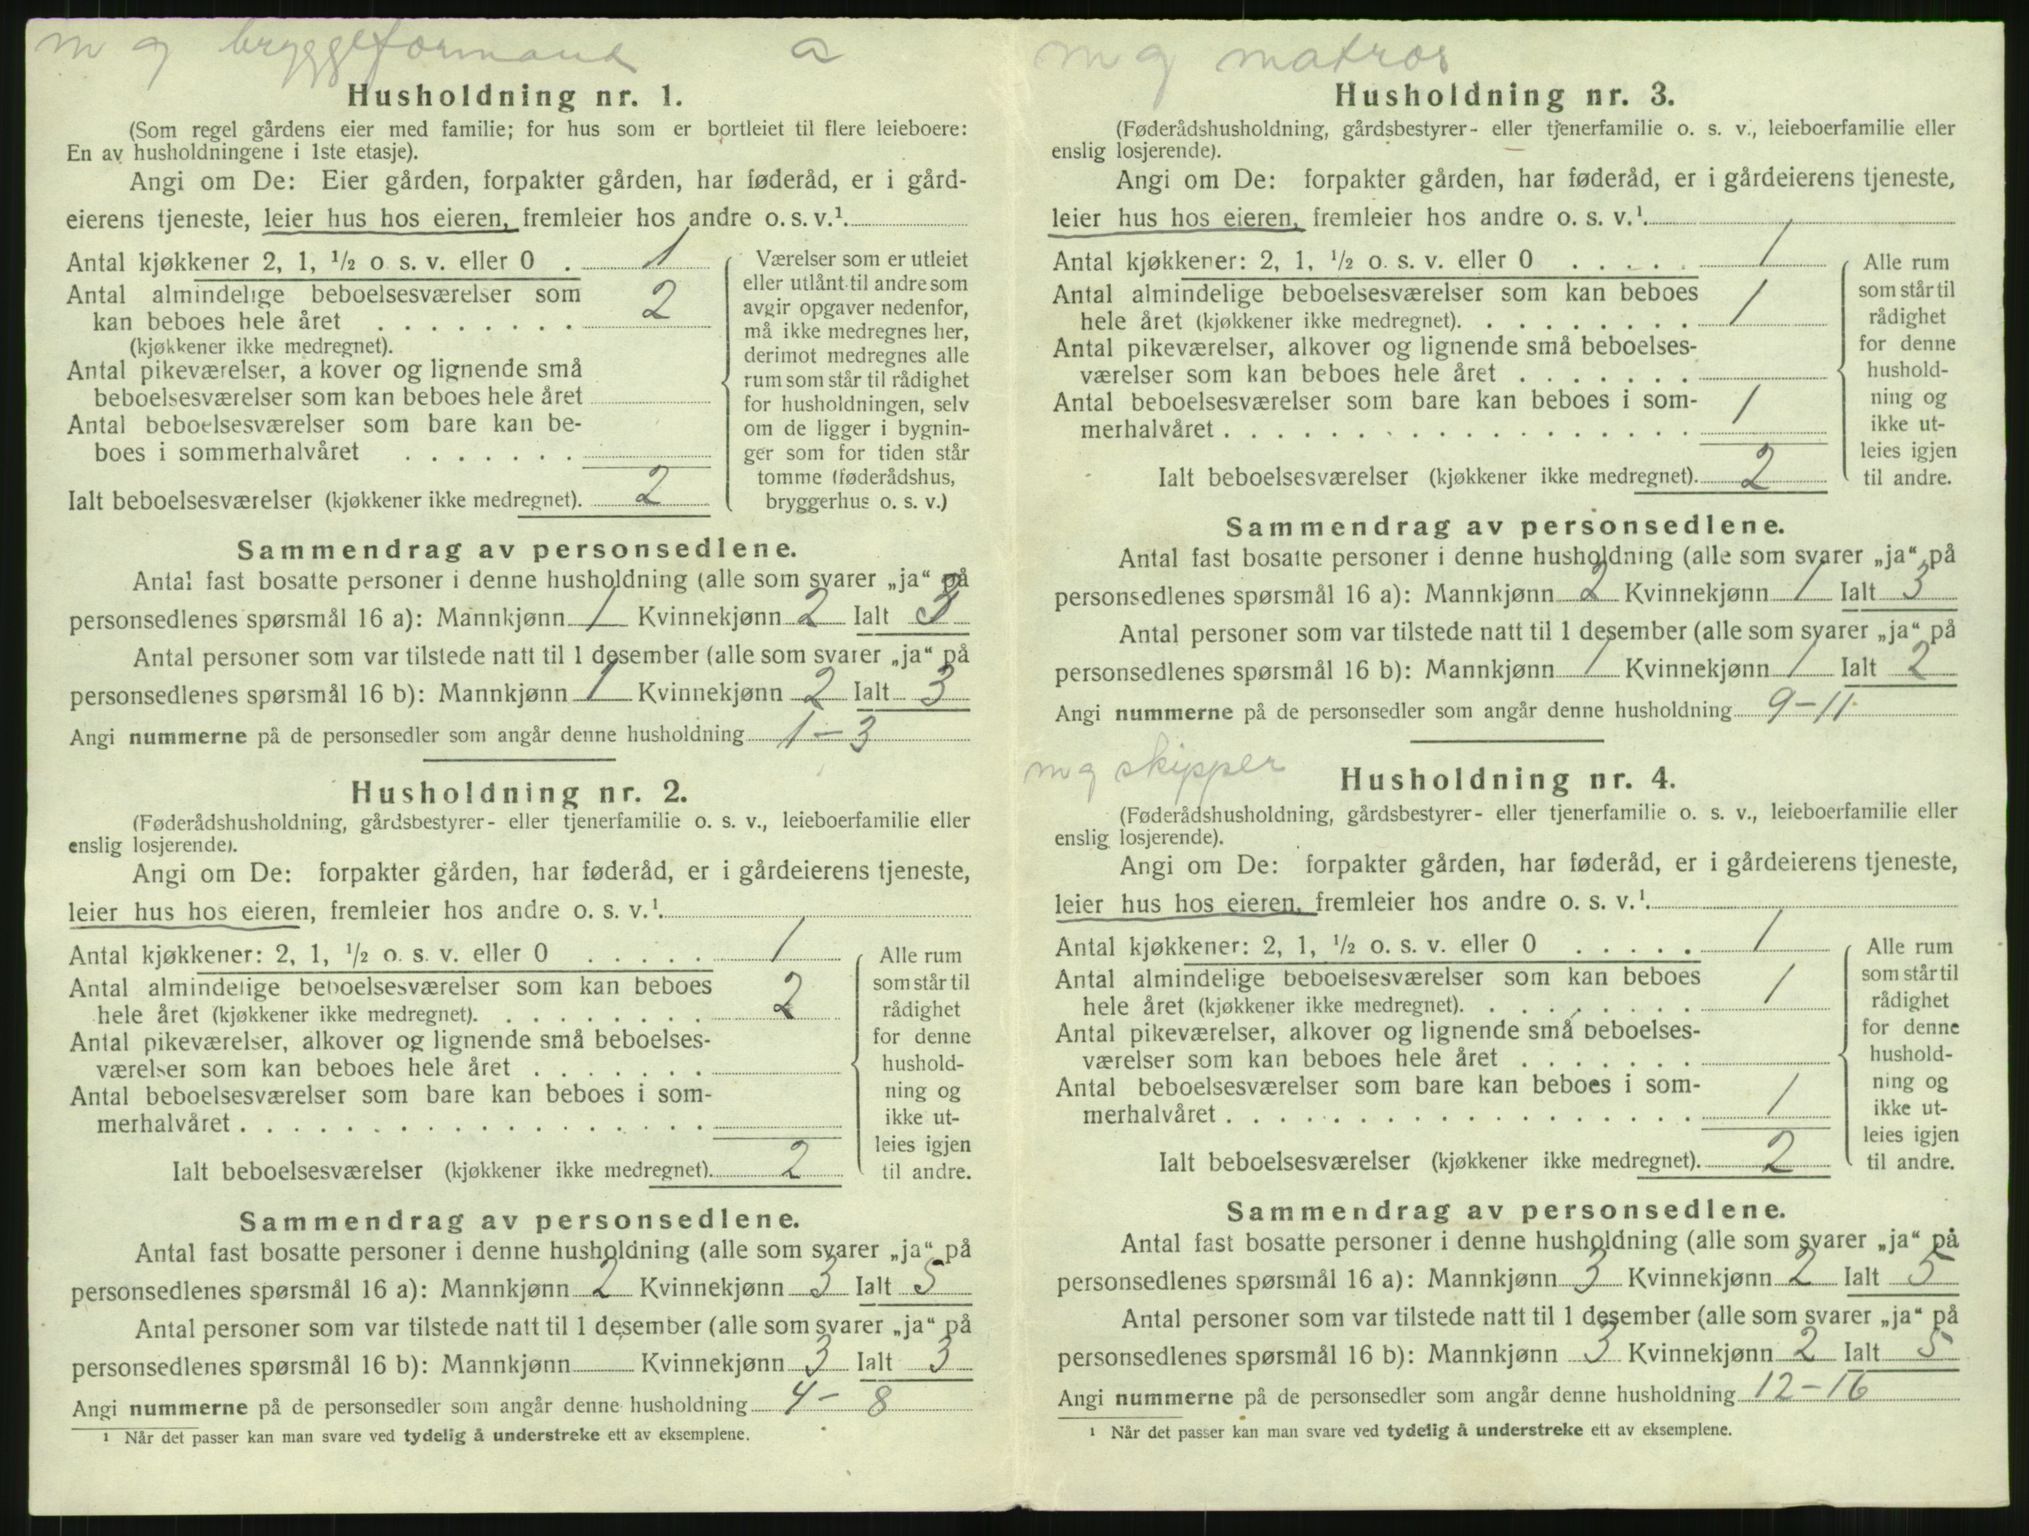 m g bryggeformand a
Husholdning nr. 1.
(Som regel gårdens eier med familie; for hus som er bortleiet til flere leieboere:
En av husholdningene i 1ste etasje).
Angi om De: Eier gården, forpakter gården, har føderåd, er i gård-
eierens tjeneste, leier hus hos eieren, fremleier hos andre o. s. v.¹.
Antal kjøkkener 2, 1, ½ o s. v. eller 0 . 1
Antal almindelige beboelsesværelser som
kan beboes hele året . . . . . . . . 2
(kjøkkener ikke medregnet).
Antal pikeværelser, a kover og lignende små
beboelsesværelser som kan beboes hele året
Antal beboelsesværelser som bare kan be-
boes i sommerhalvåret . . . . . . .
Ialt beboelsesværelser (kjøkkener ikke medregnet). 2
Værelser som er utleiet
eller utlånt til andre som
avgir opgaver nedenfor,
må ikke medregnes her,
derimot medregnes alle
rum som står til rådighet
for husholdningen, selv
om de ligger i bygnin-
ger som for tiden står
tomme (føderådshus,
bryggerhus o. s. v.)
Sammendrag av personsedlene.
Antal fast bosatte personer i denne husholdning (alle som svarer „ja“ på
personsedlenes spørsmål 16 a): Mannkjønn 1 Kvinnekjønn 2 Ialt 3
Antal personer som var tilstede natt til 1 desember (alle som svarer „ja“ på
personsedlenes spørsmål 16 b): Mannkjønn 1 Kvinnekjønn 2 Ialt 3
Angi nummerne på de personsedler som angår denne husholdning 1 - 3
Husholdning nr. 2.
(Føderådshusholdning, gårdsbestyrer- eller tjenerfamilie o. s. v., leieboerfamilie eller
enslig losjerende).
Angi om De: forpakter gården, har føderåd, er i gårdeierens tjeneste,
leier hus hos eieren, fremleier hos andre o. s. v.¹.
Antal kjøkkener: 2, 1, ½ o. s. v. eller 0 . . . . . 1
Antal almindelige beboelsesværelser som kan beboes
hele året (kjøkkener ikke medregnet). . . . . . . . . 2
Antal pikeværelser, alkover og lignende små beboelses-
værelser som kan beboes hele året . . . . . . .
Antal beboelsesværelser som bare kan beboes i som-
merhalvåret . . . . . . . . . . . . . . . . . .
Ialt beboelsesværelser (kjøkkener ikke medregnet). 2
Alle rum
som står til
rådighet
for denne
hushold-
ning og
ikke ut-
leies igjen
til andre.
Sammendrag av personsedlene.
Antal fast bosatte personer i denne husholdning (alle som svarer „ja“ på
personsedlenes spørsmål 16 a): Mannkjønn 2 Kvinnekjønn 3 Ialt 5
Antal personer som var tilstede natt til 1 desember (alle som svarer „ja“ på
personsedlenes spørsmål 16 b): Mannkjønn Kvinnekjønn 3 Ialt 3
Angi nummerne på de personsedler som angår denne husholdning 4 - 8
¹ Når det passer kan man svare ved tydelig å understreke ett av eksemplene.
m g matros
Husholdning nr. 3.
(Føderådshusholdning, gårdsbestyrer- eller tjenerfamilie o. s. v., leieboerfamilie eller
enslig losjerende).
Angi om De: forpakter gården, har føderåd, er i gårdeierens tjeneste,
leier hus hos eieren, fremleier hos andre o. s. v.¹.
Antal kjøkkener: 2, 1, ½ o. s. v. eller 0 . . . . . 1
Antal almindelige beboelsesværelser som kan beboes
hele året (kjøkkener ikke medregnet). . . . . . . . . 1
Antal pikeværelser, alkover og lignende små beboelses-
værelser som kan beboes hele året . . . . . . .
Antal beboelsesværelser som bare kan beboes i som-
merhalvåret . . . . . . . . . . . . . . . . . . 1
Ialt beboelsesværelser (kjøkkener ikke medregnet). 2
Alle rum
som står til
rådighet
for denne
hushold-
ning og
ikke ut-
leies igjen
til andre.
Sammendrag av personsedlene.
Antal fast bosatte personer i denne husholdning (alle som svarer „ja“ på
personsedlenes spørsmål 16 a): Mannkjønn 2 Kvinnekjønn 1 Ialt 3
Antal personer som var tilstede natt til 1 desember (alle som svarer „ja“ på
personsedlenes spørsmål 16 b): Mannkjønn 1 Kvinnekjønn 1 Ialt 2
Angi nummerne på de personsedler som angår denne husholdning 9-11
m g skipper
Husholdning nr. 4.
(Føderådshusholdning, gårdsbestyrer- eller tjenerfamilie o. s. v., leieboerfamilie eller
enslig losjerende).
Angi om De: forpakter gården, har føderåd, er i gårdeierens tjeneste,
leier hus hos eieren, fremleier hos andre o. s. v.¹.
Antal kjøkkener: 2, 1, ½ o. s. v. eller 0 . . . . . 1
Antal almindelige beboelsesværelser som kan beboes
hele året (kjøkkener ikke medregnet). . . . . . . . . 1
Antal pikeværelser, alkover og lignende små beboelses-
værelser som kan beboes hele året . . . . . . .
Antal beboelsesværelser som bare kan beboes i som-
merhalvåret . . . . . . . . . . . . . . . . . . 1
Ialt beboelsesværelser (kjøkkener ikke medregnet). 2
Alle rum
som står til
rådighet
for denne
hushold-
ning og
ikke ut-
leies igjen
til andre.
Sammendrag av personsedlene.
Antal fast bosatte personer i denne husholdning (alle som svarer „ja“ på
personsedlenes spørsmål 16 a): Mannkjønn 3 Kvinnekjønn 2 Ialt 5
Antal personer som var tilstede natt til 1 desember (alle som svarer „ja“ på
personsedlenes spørsmål 16 b): Mannkjønn 3 Kvinnekjønn 2 Ialt 5
Angi nummerne på de personsedler som angår denne husholdning 12-16
¹ Når det passer kan man svare ved tydelig å understreke ett av eksemplene.